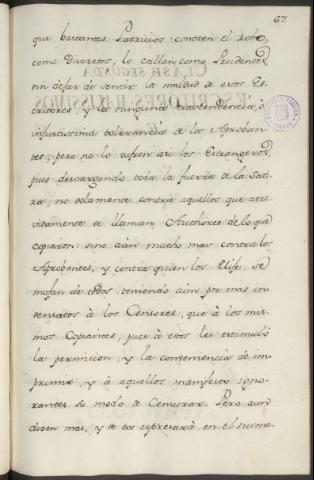 67.
que bastantes Patricios conocen el robo,
como Discretos, lo callan como Prudentes,
sin dejar de sentir la maldad de estos Es-
critores, y la ninguna trascendencia, ò
injustissima tolerancia de los Aproban-
tes; pero no lo sufren asi los Estrangeros,
pues descargando toda la fuerza de la Sati-
ra, no solamente contra aquellos que atre-
vidamente se llaman Authores de lo que
copiaron: sino aùn mucho mas contra los
Aprobantes, y contra quien los elije se
mofan de todos teniendo aùn por mas in-
sensatos à los Censores, que à los mis-
mos Copiantes, pues à estos les estimulò
la permission, y la conveniencia de im-
primir, y à aquellos manifesto igno-
rantes su modo de Censurar. Pero aun
dizen mas, y se expresarà en el nume-